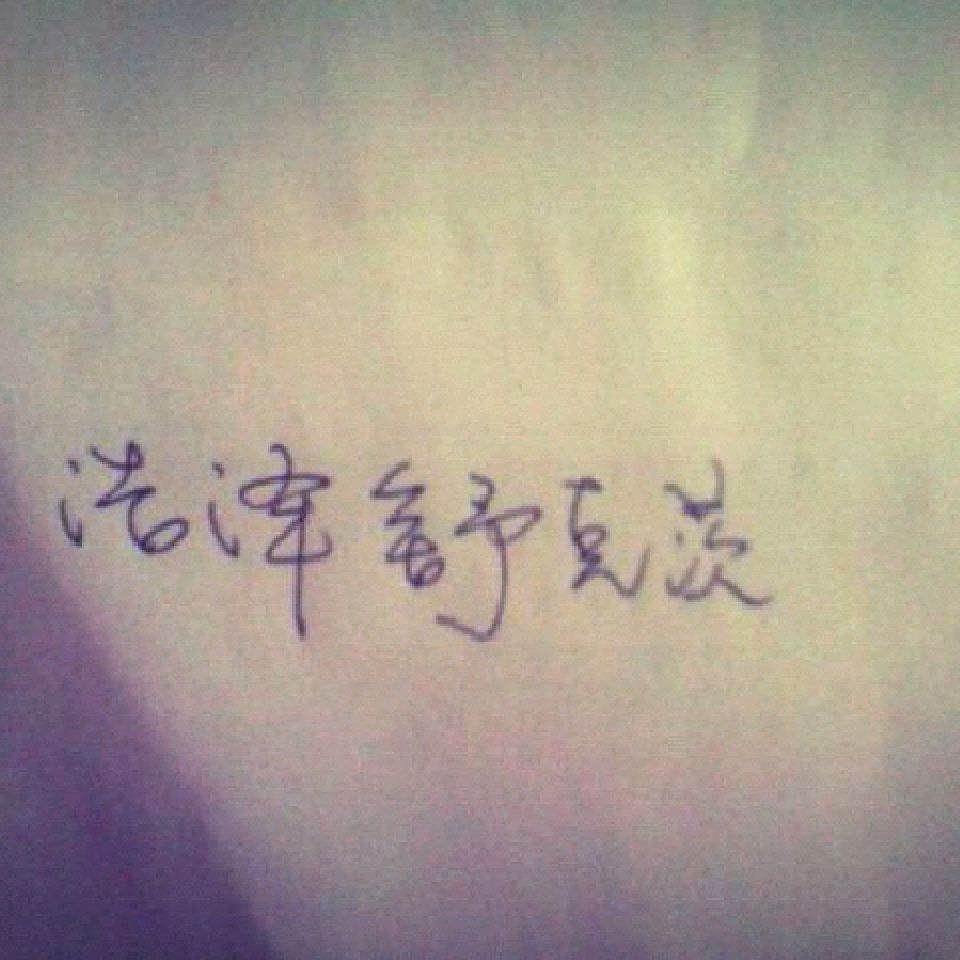 浩泽舒克茨